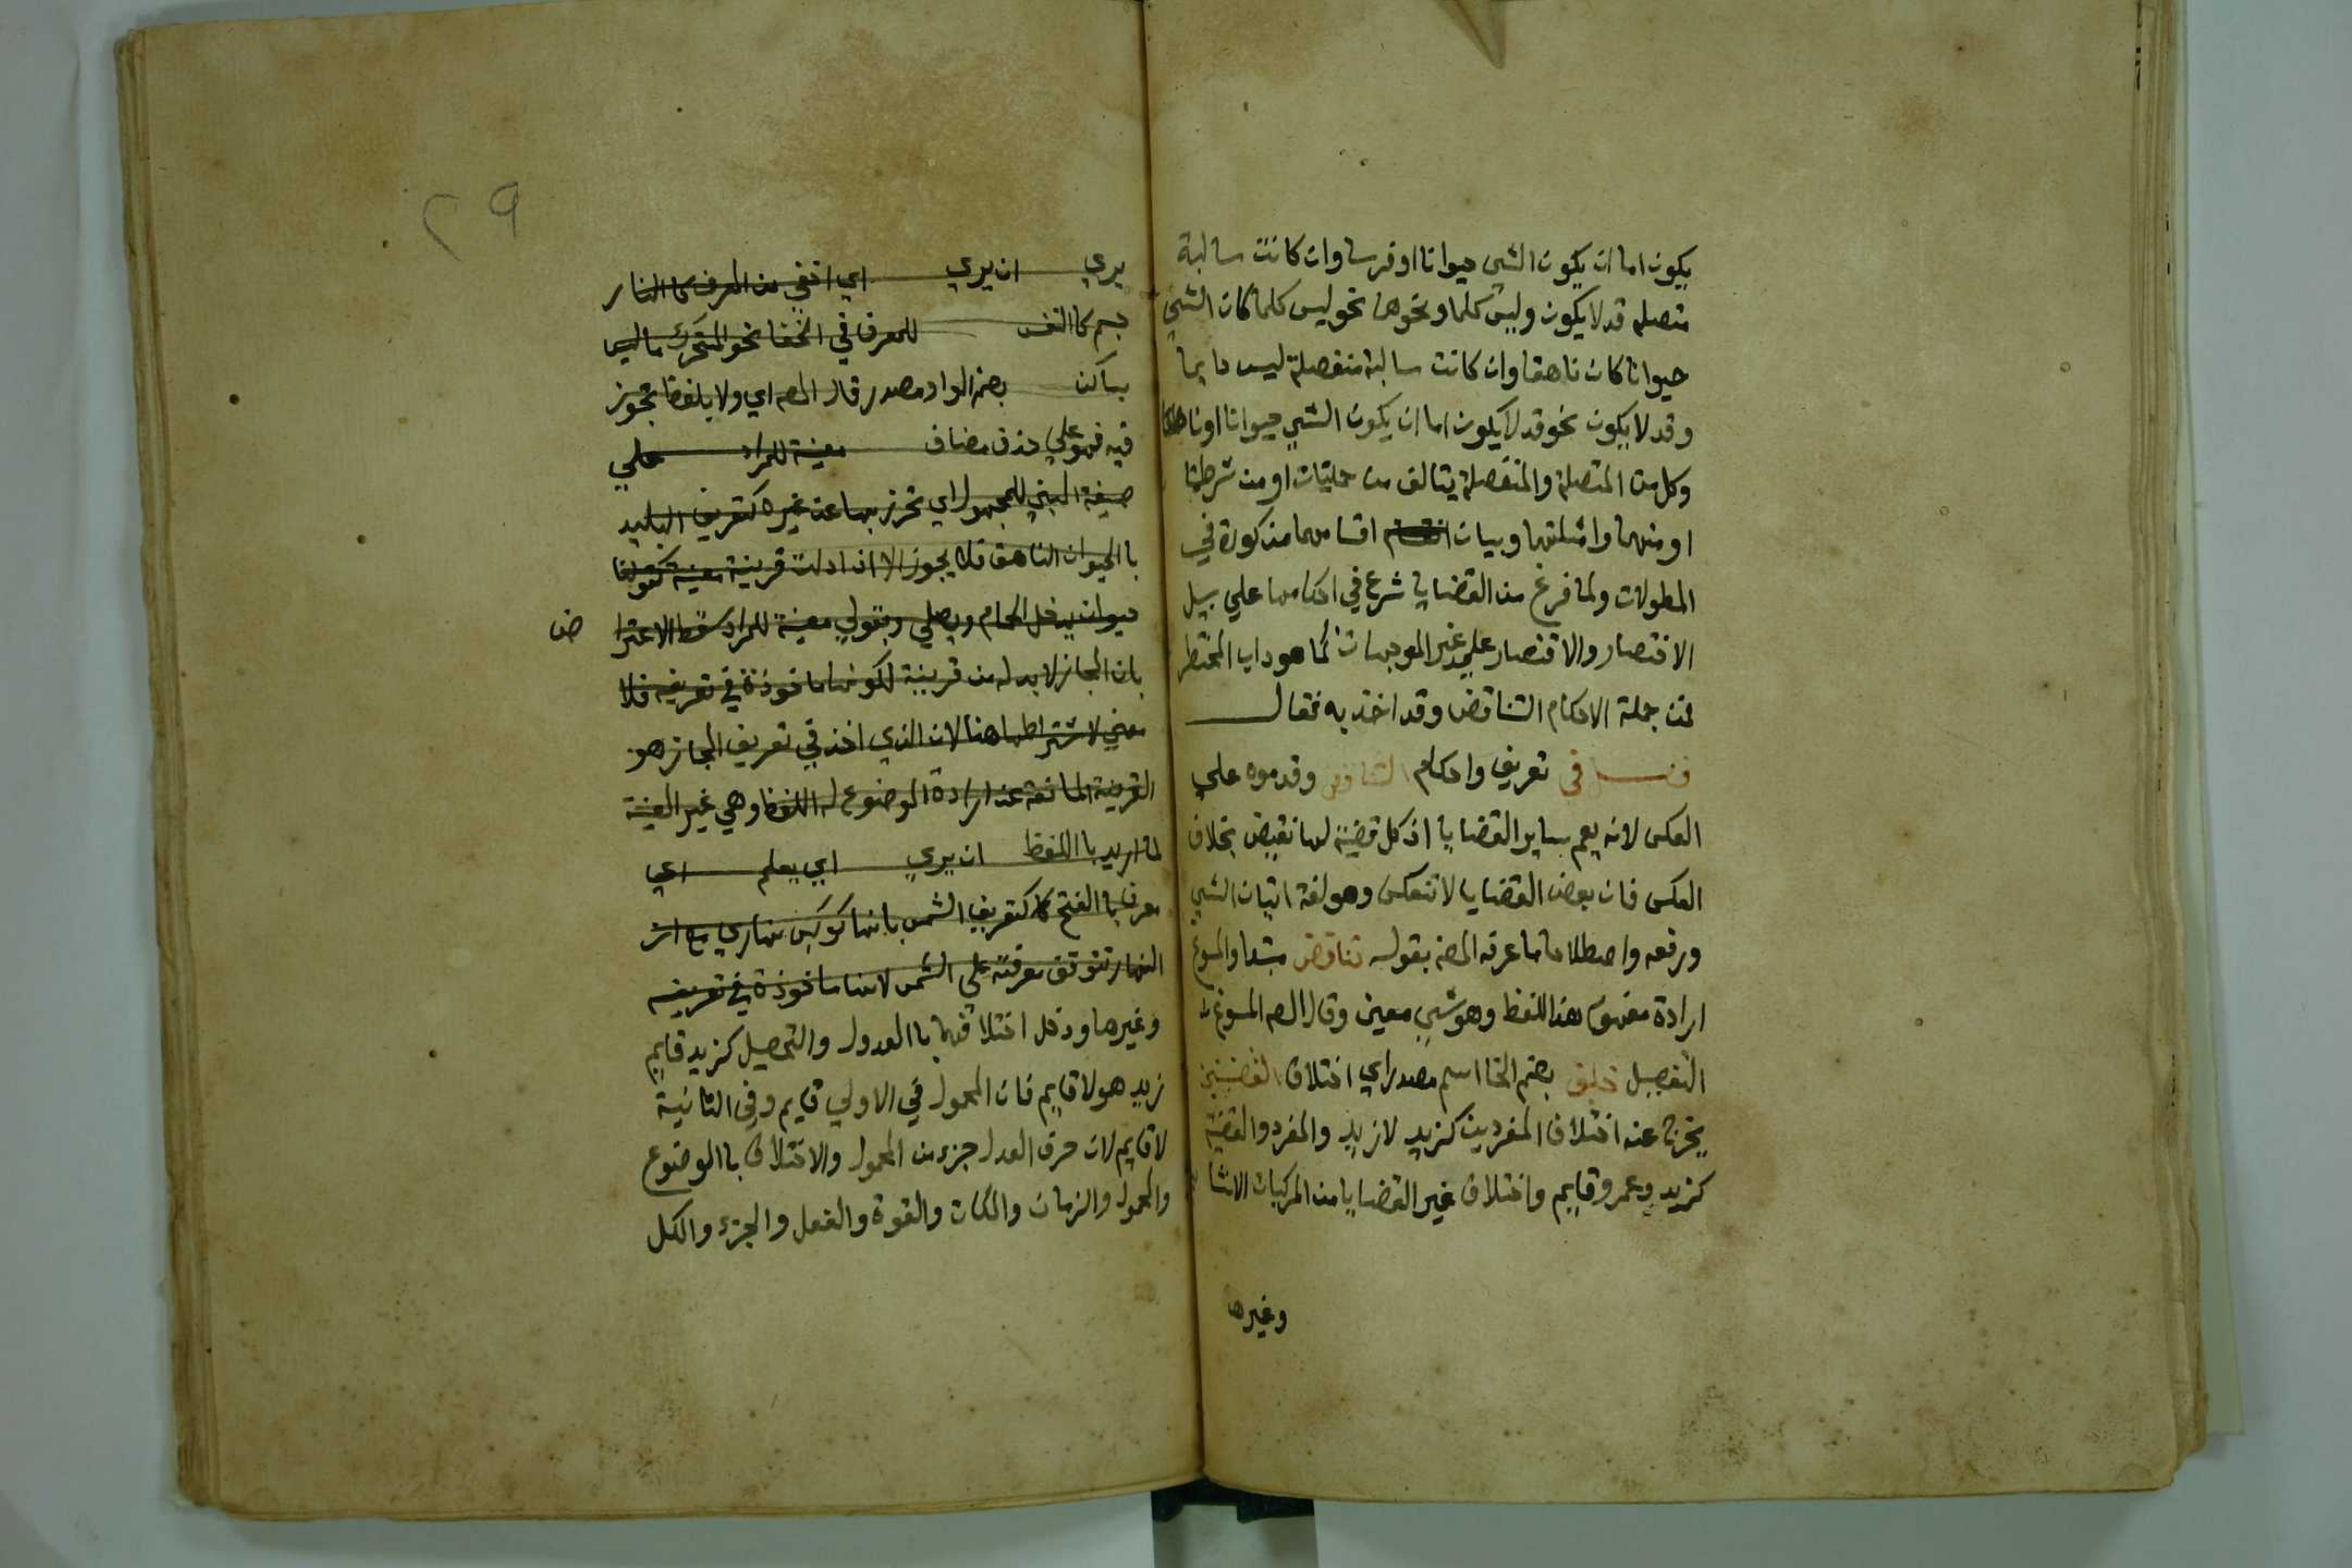 يكون اما ان يكون الشي حيوانا او فرسا وان كانت سالبة
متصلة قد لا يكون وليس كلما ونحوها نحو ليس كلما كان الشي
حيوانا كان ناهقا وان كانت سالبة منفصلة ليس دايما
وقد لا يكون نحو قد لا يكون اما ان يكون الشي حيوانا او ناهقا
وكل من المتصلة والمنفصلة يتالف من حمليات او من شرطيات
او منهما وامثلتها وبيان اقسامها مذكورة في
المطولات ولما فرغ من القضايا شرع في احكامها علي سبيل
الاختصار والاقتصار علي غير الموجهات كما هو داب المختصر
فمن جملة الاحكام التناقض وقد اخذ به فقال
فصل في تعريف واحكام التناقض وقدموه علي
العكس لانه يعم ساير القضايا اذ كل قضية لها نقيض بخلاف
العكس فان بعض القضايا لا تنعكس وهو لغة اثبات الشي
ورفعه واصطلاحا ما عرفه المص بقوله تناقض مبتدا والمسوغ
ارادة مفهوم هذا اللفظ وهو شي معين وقال المص المسوغ
التفصيل خلف بضم الخا اسم مصدر اي اختلاف القضيتين
يخرج عنه اختلاف المفردين كزيد لا زيد والمفرد والقضية
كزيد وعمرو قايم واختلاف غير القضايا من المركبات الانشا
وغيرها
٢٩
يري ان يري اي اخفي من المعرف كا النار
جسم كا النفس للمعرف في الخفا نحو المتحرك ما ليس
بساكن بضم الواو مصدر قال المص اي ولا بلفظ تجوز
فيه فهو علي حذف مضاف معينة للمراد علي
صيغة المبني للمجهول اي تحرز بها عن غيره كتعريف البليد
با الحيوان الناهق فلا يجوز الا ان دلت قرينة معينة كقولنا
حيوان يدخل الحمام ويصلي وبقولي معينة للمراد سقط الاعترا ض
بان المجاز لا بد له من قرينة لكونها ماخوذة في تعريفه فلا
معني لاشتراطها هنا لان الذي اخذ في تعريف المجاز هو
القرينة المانعة عن ارادة الموضوع له اللفظ وهي غير المعينة
لما اريد با اللفظ ان يري اي يعلم اي
معرف با الفتح كا كتعريف الشمس بانها كوكب نهاري مع ان
النهار تتوقف معرفته علي الشمس لانها ماخوذة في تعريفه
وغيرها ودخل اختلافهما با العدول والتحصيل كزيد قايم
زيد هو لا قايم فان المحمول في الاولي قايم وفي الثانية
لا قايم لان حرف العدل جزء من المحمول والاختلاف با الموضوع
والمحمول والزمان والمكان والقوة والفعل والجزء والكل